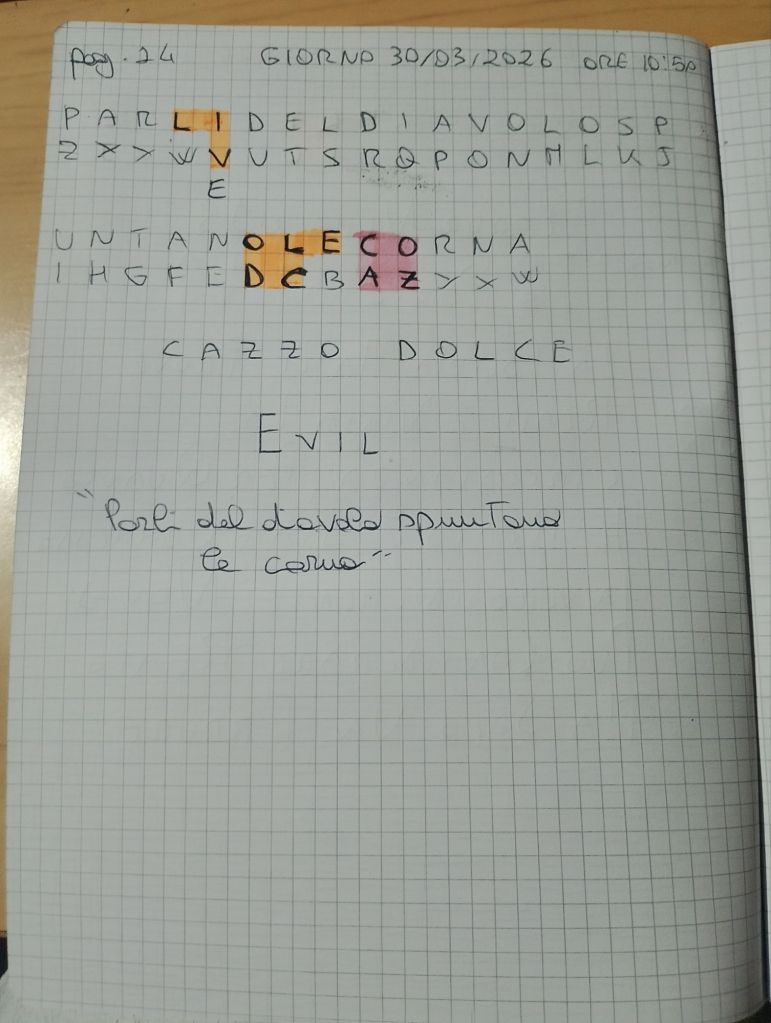 pag. 24 GIORNO 30/03/2026 ORE 10:50
P A R L I D E L D I A V O L O S P
Z Y X W V U T S R Q P O N M L K J
E
U N T A N O L E C O R N A
I H G F E D C B A Z Y X W
CAZZO DOLCE
EVIL
"Parli del diavolo spuntano
le corna"